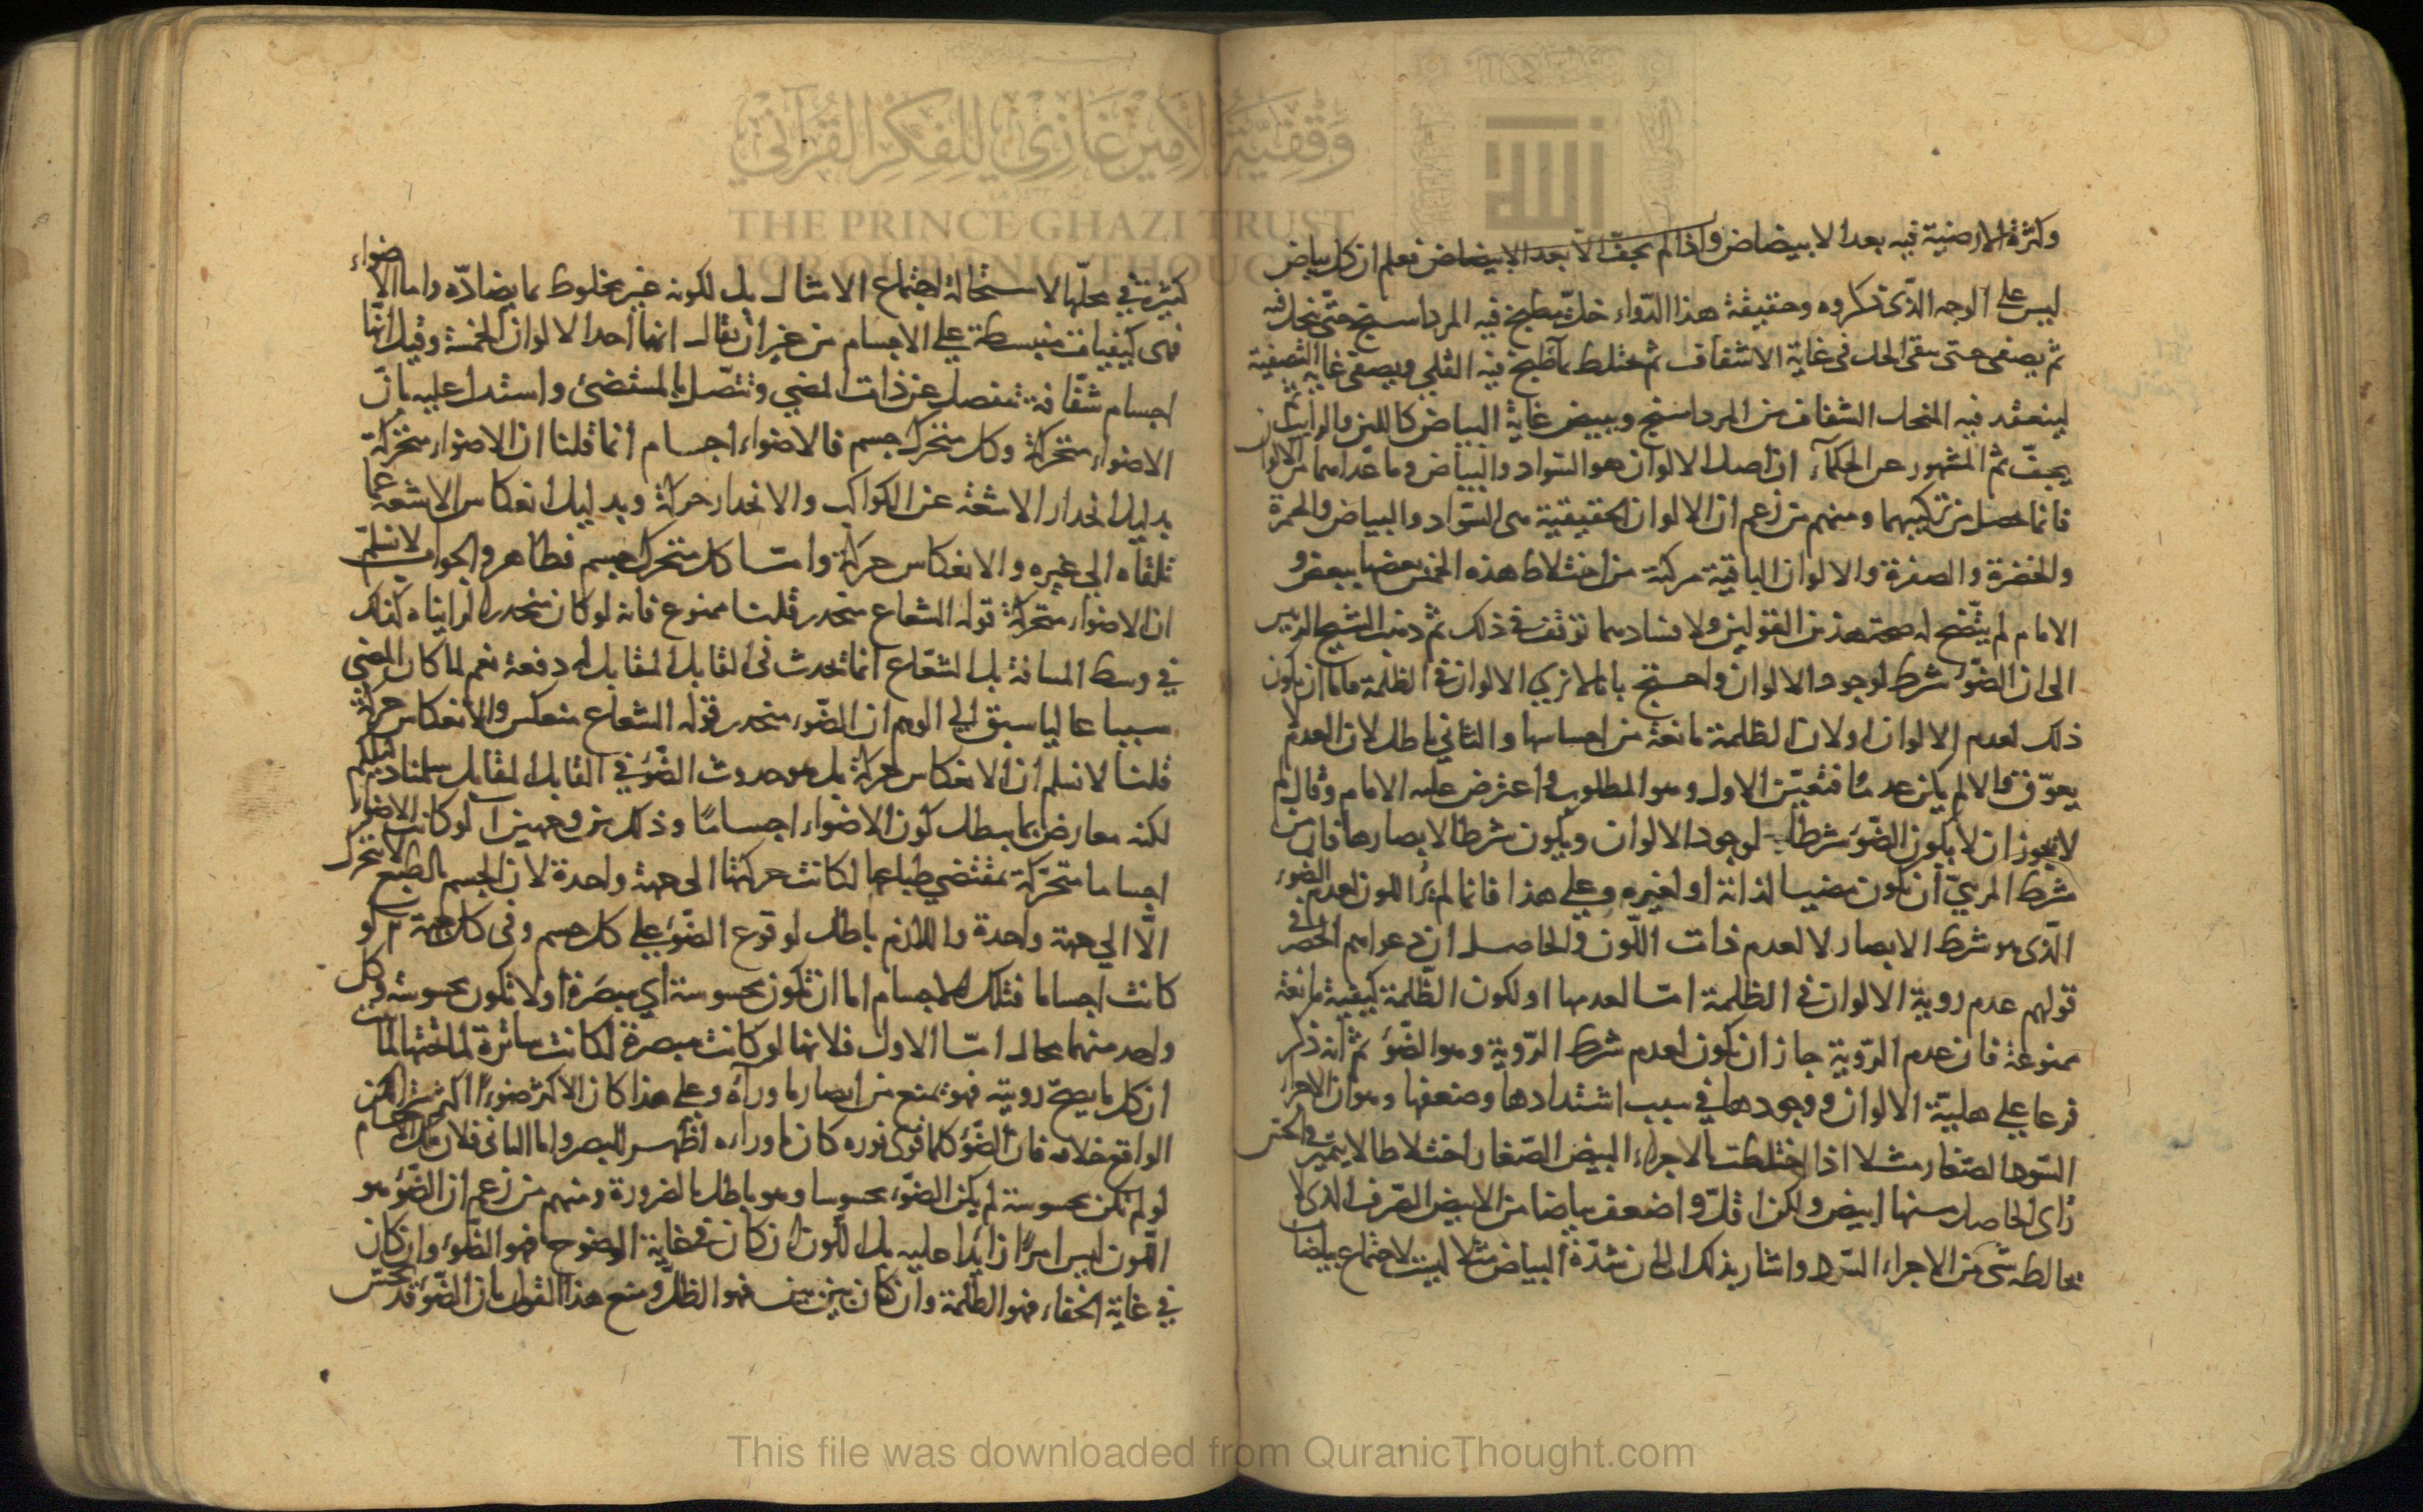 وكثرة الارضية فيه بعد الابيضاض واذا لم يجف الا بعد الابيضاض فعلم ان كل بياض
ليس على الوجه الذى ذكروه وحقيقة هذا الدواء خل يطبخ فيه المرداسنج حتى ينحل فيه
ثم يصفى حتى يبقى الخل فى غاية الاشفاف ثم يختلط بما طبخ فيه القلى ويصفى غاية التصفية
لينعقد فيه المنحل الشفاف من المرداسنج ويبيض غاية البياض كاللبن الرايب ثم
يجف ثم المشهور عن الحكماء ان اصل الالوان هو السواد والبياض وما عداهما من الالوان
فانما حصل من تركيبهما ومنهم من زعم ان الالوان الحقيقية هى السواد والبياض والحمرة
والخضرة والصفرة والالوان الباقية مركبة من اختلاط هذه الخمس بعضها ببعض و
الامام لم يتضح له صحة هذين القولين ولا فسادهما توقف فى ذلك ثم ذهب الشيخ الرئيس
الى ان الضوء شرط لوجود الالوان واحتج بانا لا نرى الالوان فى الظلمة فاما ان يكون
ذلك لعدم الالوان او لان الظلمة مانعة من احساسها والثاني باطل لان العدم لا
يعوق والا لم يكن عدما فتعين الاول وهو المطلوب واعترض عليه الامام وقال لم
لا يجوز ان لا يكون الضوء شرطا لوجود الالوان ويكون شرطا لابصارها فان من
شرط المرئي ان يكون مضيا لذاته او لغيره وعلى هذا فانما لم ير اللون لعدم الضوء
الذى هو شرط الابصار لا لعدم ذات اللون والحاصل ان دعواهم الحصر فى
قولهم عدم روية الالوان فى الظلمة اما لعدمها او لكون الظلمة كيفية مانعة
ممنوعة فان عدم الروية جاز ان يكون لعدم شرط الروية وهو الضوء ثم انه ذكر
فرعا على هلية الالوان ووجودها في سبب اشتدادها وضعفها وهو ان الاجزاء
السود الصغار مثلا اذا اختلطت بالاجزاء البيض الصغار اختلاطا لا يتميز فى الحس
راى الحاصل منها ابيض ولكن اقل واضعف بياضا من الابيض الصرف الذى لا
يخالطه شى من الاجزاء السود واشار بذلك الى ان شدة البياض مثلا ليست لاجتماع بياضات
كثيرة في محلها لاستحالة اجتماع الامثال بل لكونه غير مخلوط بما يضاده واما الاضواء
فهى كيفيات منبسطة على الاجسام من غير ان يقال انها احد الالوان الخمسة وقيل انها
اجسام شفافة تنفصل عن ذات المضي وتتصل بالمستضئ واستدل عليه بان
الاضواء متحركة وكل متحرك جسم فالاضواء اجسام انما قلنا ان الاضواء متحركة
بدليل انحدار الاشعة عن الكواكب والانحدار حركة وبدليل انعكاس الاشعة عما
تلقاه الى غيره والانعكاس حركة واما كل متحرك جسم فظاهر والجواب لا نسلم
ان الاضواء متحركة قوله الشعاع منحدر قلنا ممنوع فانه لو كان منحدرا لرايناه كذلك
في وسط المسافة بل الشعاع انما تحدث فى القابل المقابل له دفعة نعم لما كان المضي
سببا عاليا سبق الى الوهم ان الضوء منحدر قوله الشعاع منعكس والانعكاس حركة
قلنا لا نسلم ان الانعكاس حركة بل هو حدوث الضوء في القابل المقابل سلمنا دليلكم
لكنه معارض بما يبطل كون الاضواء اجساما وذلك من وجهين آ لو كانت الاضواء
اجساما متحركة بمقتضى طباعها لكانت حركتها الى جهة واحدة لان الجسم بالطبع لا يتحرك
الا الى جهة واحدة واللازم باطل لوقوع الضوء على كل جسم وفى كل جهة ب لو
كانت اجساما فتلك الاجسام اما ان تكون محسوسة اي مبصرة او لا تكون محسوسة وكل
واحد منهما محال اما الاول فلانها لو كانت مبصرة لكانت ساترة لما تحتها لما ثبت
ان كل ما يصح رويته فهو يمنع من ابصار ما ورآه وعلى هذا كان الاكثر ضوءا اكثر سترا لكن
الواقع خلافه فان الضوء كلما قوى نوره كان ما وراءه اظهر للبصر واما الثانى فلان تلك الاجسام
لو لم تكن محسوسة لم يكن الضوء محسوسا وهو باطل بالضرورة ومنهم من زعم ان الضوء هو
اللون ليس امرا زايدا عليه بل اللون ان كان فى غاية الوضوح فهو الضوء وان كان
في غاية الخفاء فهو الظلمة وان كان بين بين فهو الظل ومنع هذا القول بان الضوء قد يحس
وقفية الأمير غازي للفكر القرآني
THE PRINCE GHAZI TRUST
FOR QUR'ANIC THOUGHT
This file was downloaded from QuranicThought.com